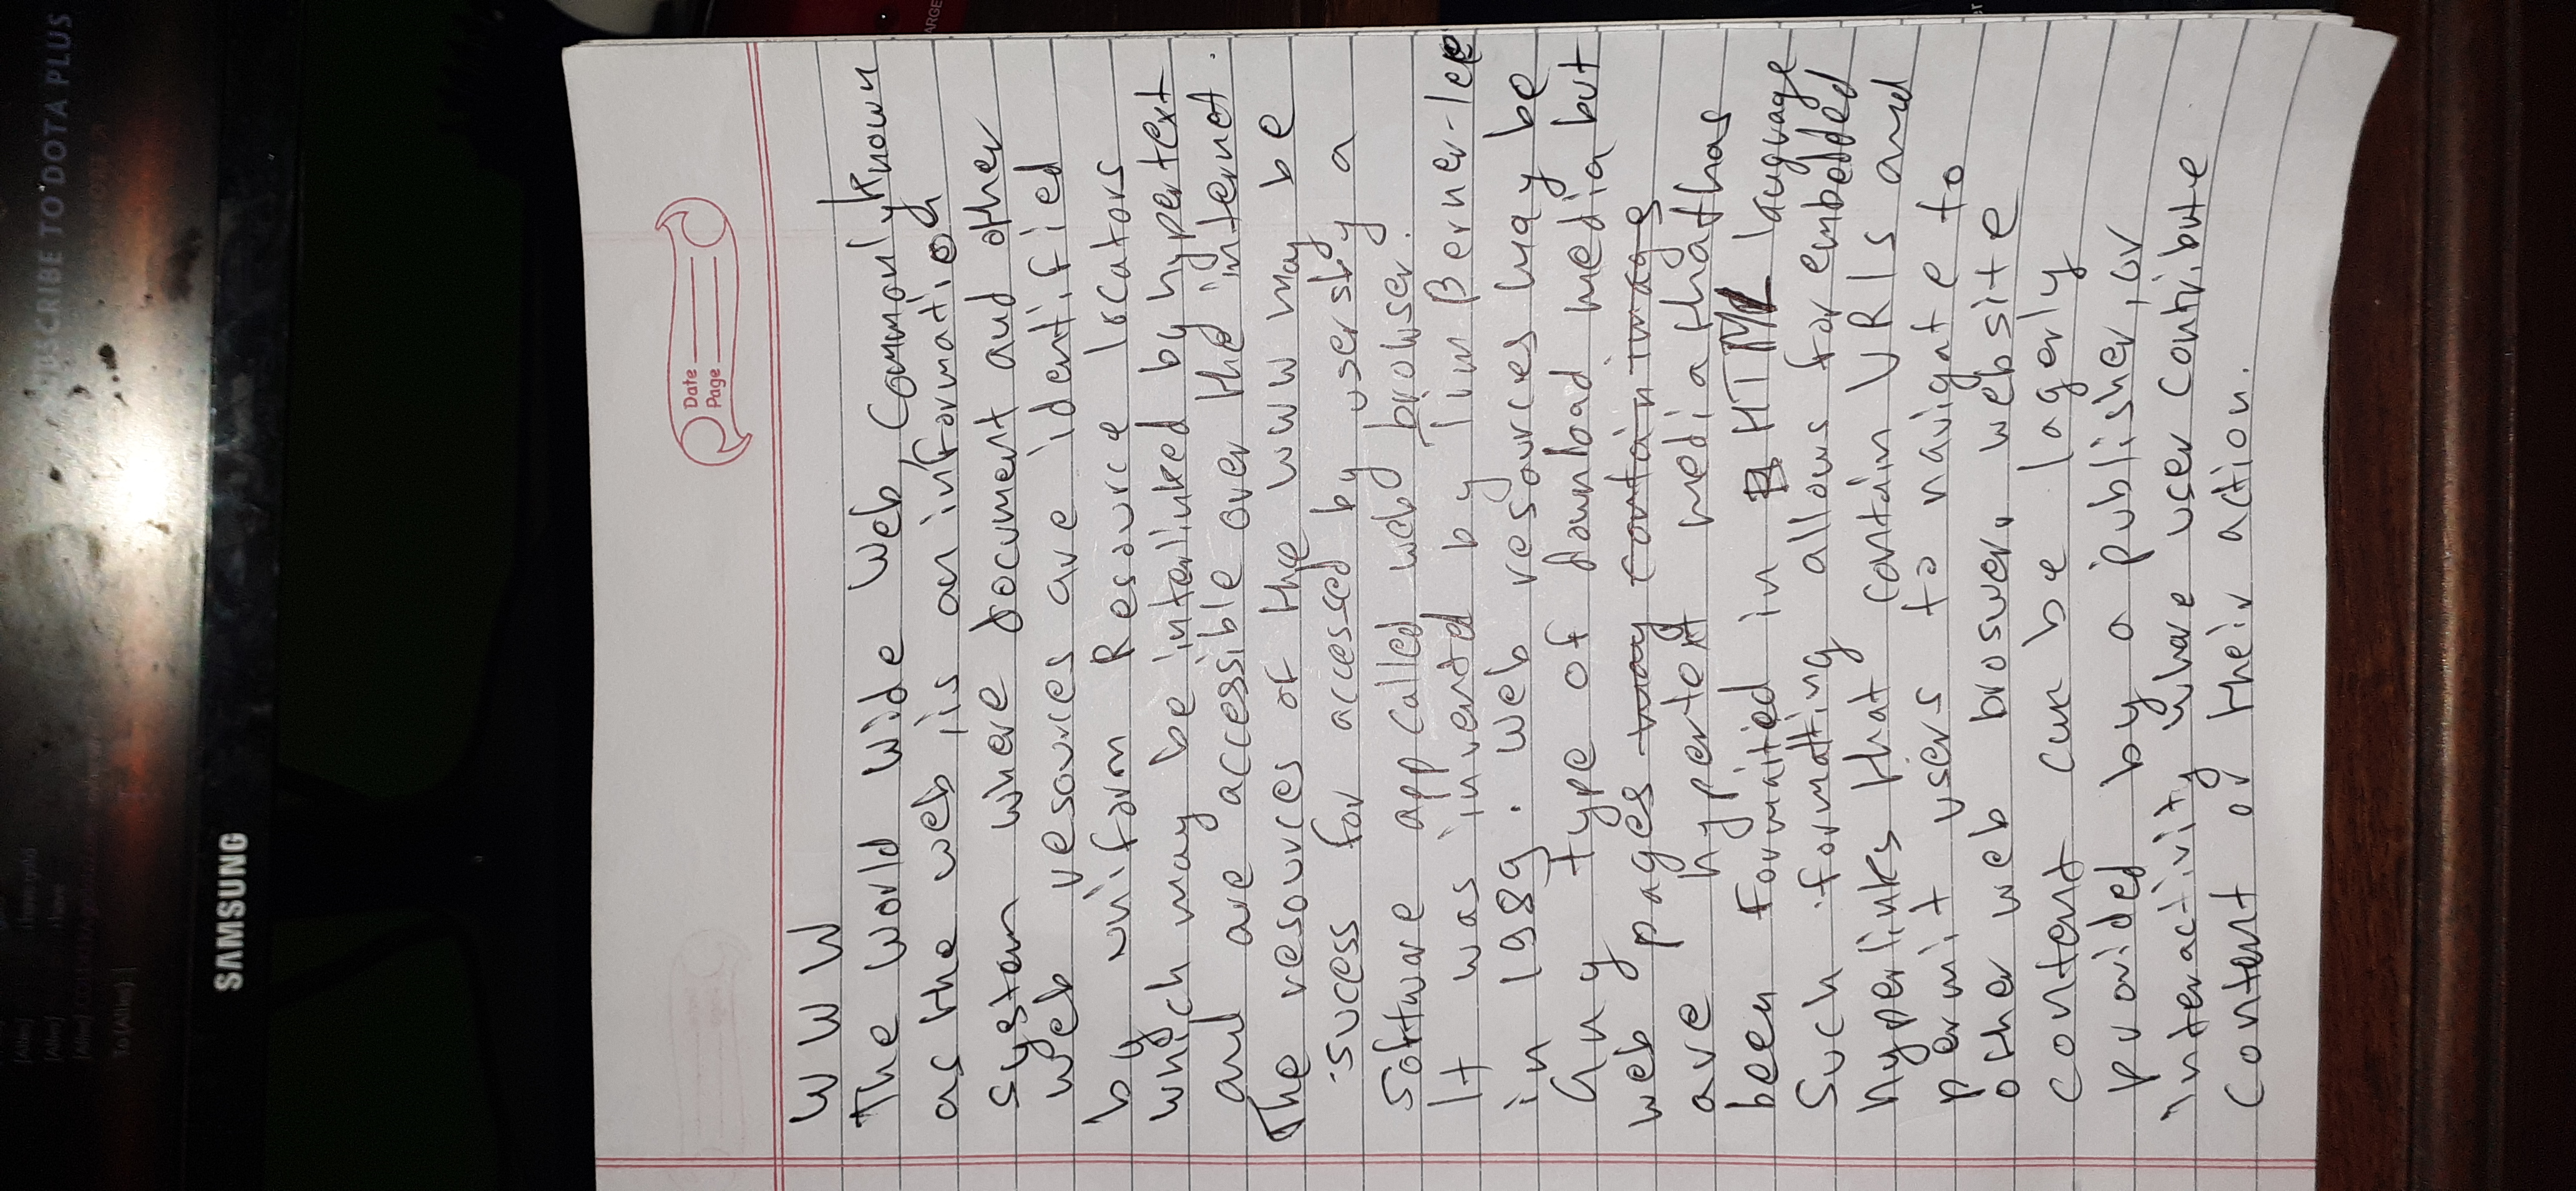 [Allies] i have gold
[Allies] i have
[Allies]
To (Allies):
SUBSCRIBE TO DOTA PLUS
SAMSUNG
Date
Page
WWW
The World Wide Web, Commonly known
as the web, is an information
system where document and other
web resources are identified
by uniform Resource locators
which may be interlinked by hypertext
and are accessible over the internet.
The resources of the WWW may be
sucess for accessed by users by a
software app called web browser.
It was invented by Tim Berner-lee
in 1989. Web resources may be
any type of download media but
web pages may contain image
are hypertext media that has
been Formatted in HTML language
Such formatting allows for embedded
hyperlinks that contain URLs and
permit users to navigate to
other web broswer. website
content can be lagerly
provided by a publisher, or
interactivity where user contribute
content or their action.
ARGE